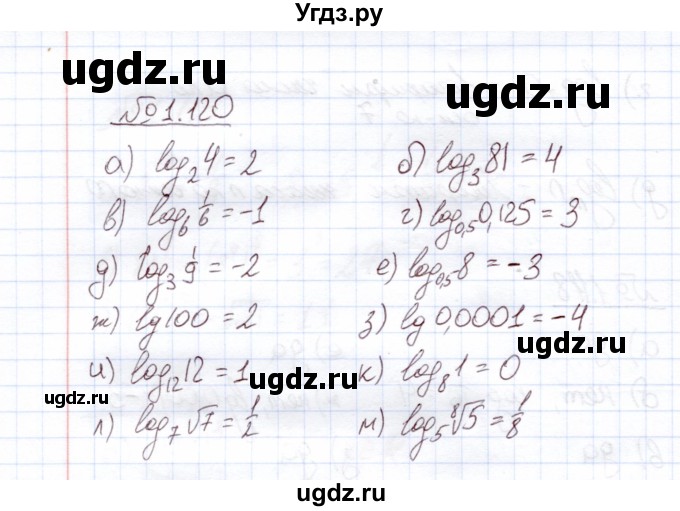 Угдз.ру
ugdz.ru
ugdz.ru
№1.120
а) log₂4 = 2
б) log₃81 = 4
в) log₆ 1/6 = -1
г) log₀,₅0,125 = 3
ugdz.ru
д) log₃ 1/9 = -2
е) log₀,₅8 = -3
ж) lg100 = 2
з) lg0,0001 = -4
и) log₁₂12 = 1
ugdz.ru
к) log₈1 = 0
ugdz.ru
ugdz.ru
л) log₇√7 = 1/2
м) log₅⁸√5 = 1/8
ugdz.ru